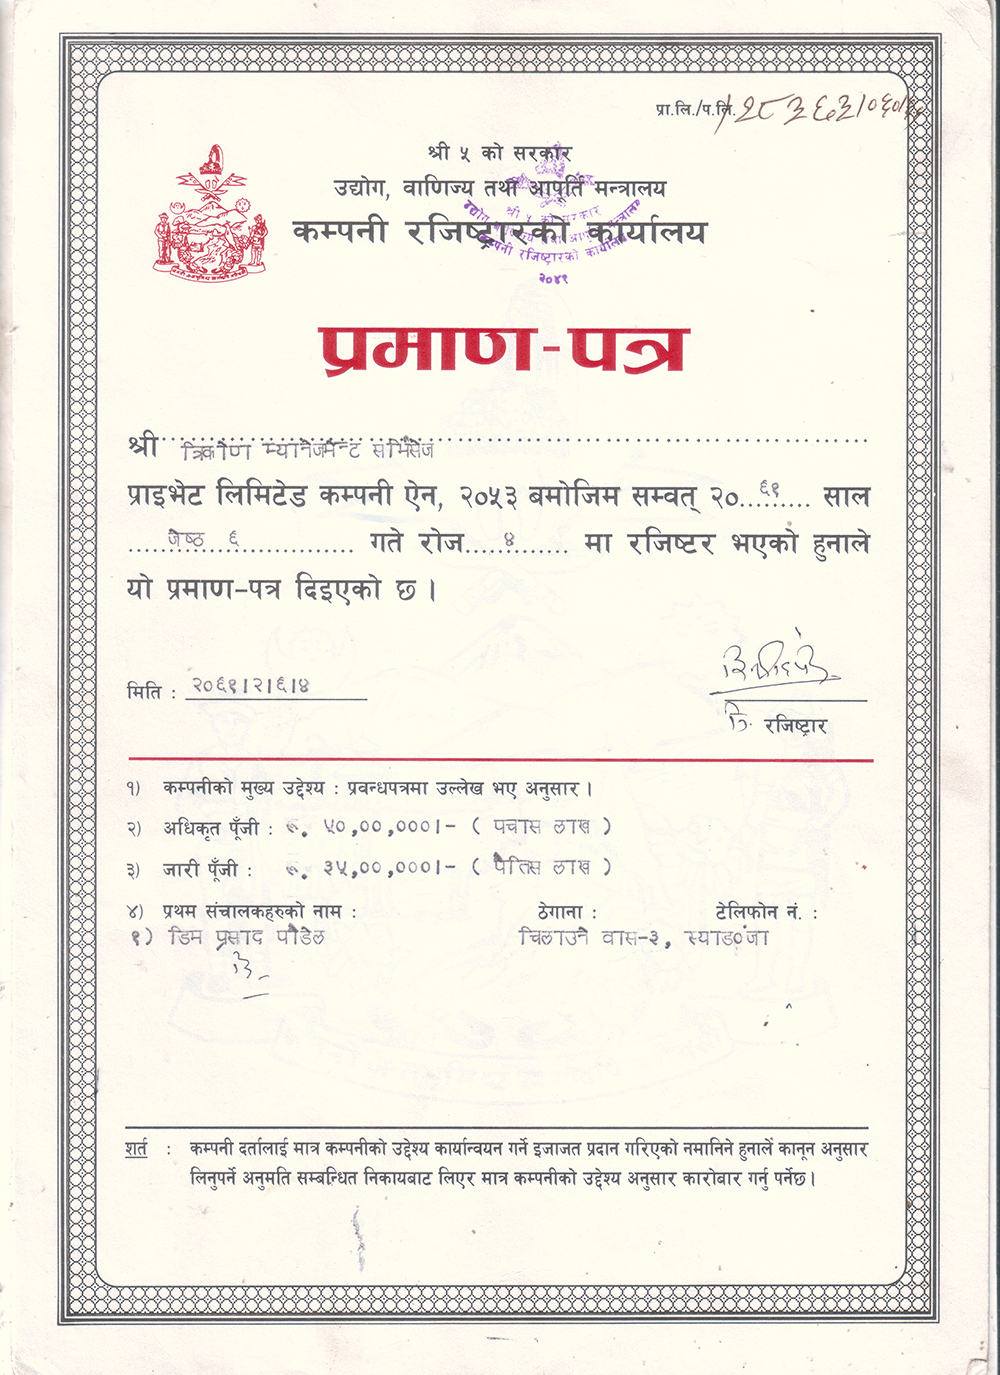 प्रा.लि./प.लि.
श्री ५ को सरकार
उद्योग, वाणिज्य तथा आपूर्ति मन्त्रालय
कम्पनी रजिष्ट्रारको कार्यालय
श्री ५ को सरकार
कम्पनी रजिष्ट्रारको कार्यालय
२०४९
प्रमाण-पत्र
श्री त्रिकोण म्यानेजमेन्ट सर्भिसेज
प्राइभेट लिमिटेड कम्पनी ऐन, २०५३ बमोजिम सम्वत् २०...६१... साल
जेष्ठ ६ गते रोज...४... मा रजिष्टर भएको हुनाले
यो प्रमाण-पत्र दिइएको छ ।
मिति : २०६१।२।६।४
रजिष्ट्रार
१) कम्पनीको मुख्य उद्देश्य : प्रवन्धपत्रमा उल्लेख भए अनुसार ।
२) अधिकृत पूँजी : रू. ५०,००,०००।- ( पचास लाख )
३) जारी पूँजी : रू. ३५,००,०००।- ( पैतिस लाख )
४) प्रथम संचालकहरुको नाम : ठेगाना : टेलिफोन नं. :
१) डिम प्रसाद पौडेल चिलाउने वास-३, स्याङ०जा
शर्त : कम्पनी दर्तालाई मात्र कम्पनीको उद्देश्य कार्यान्वयन गर्ने इजाजत प्रदान गरिएको नमानिने हुनालें कानून अनुसार
लिनुपर्ने अनुमति सम्बन्धित निकायबाट लिएर मात्र कम्पनीको उद्देश्य अनुसार कारोबार गर्नु पर्नेछ ।